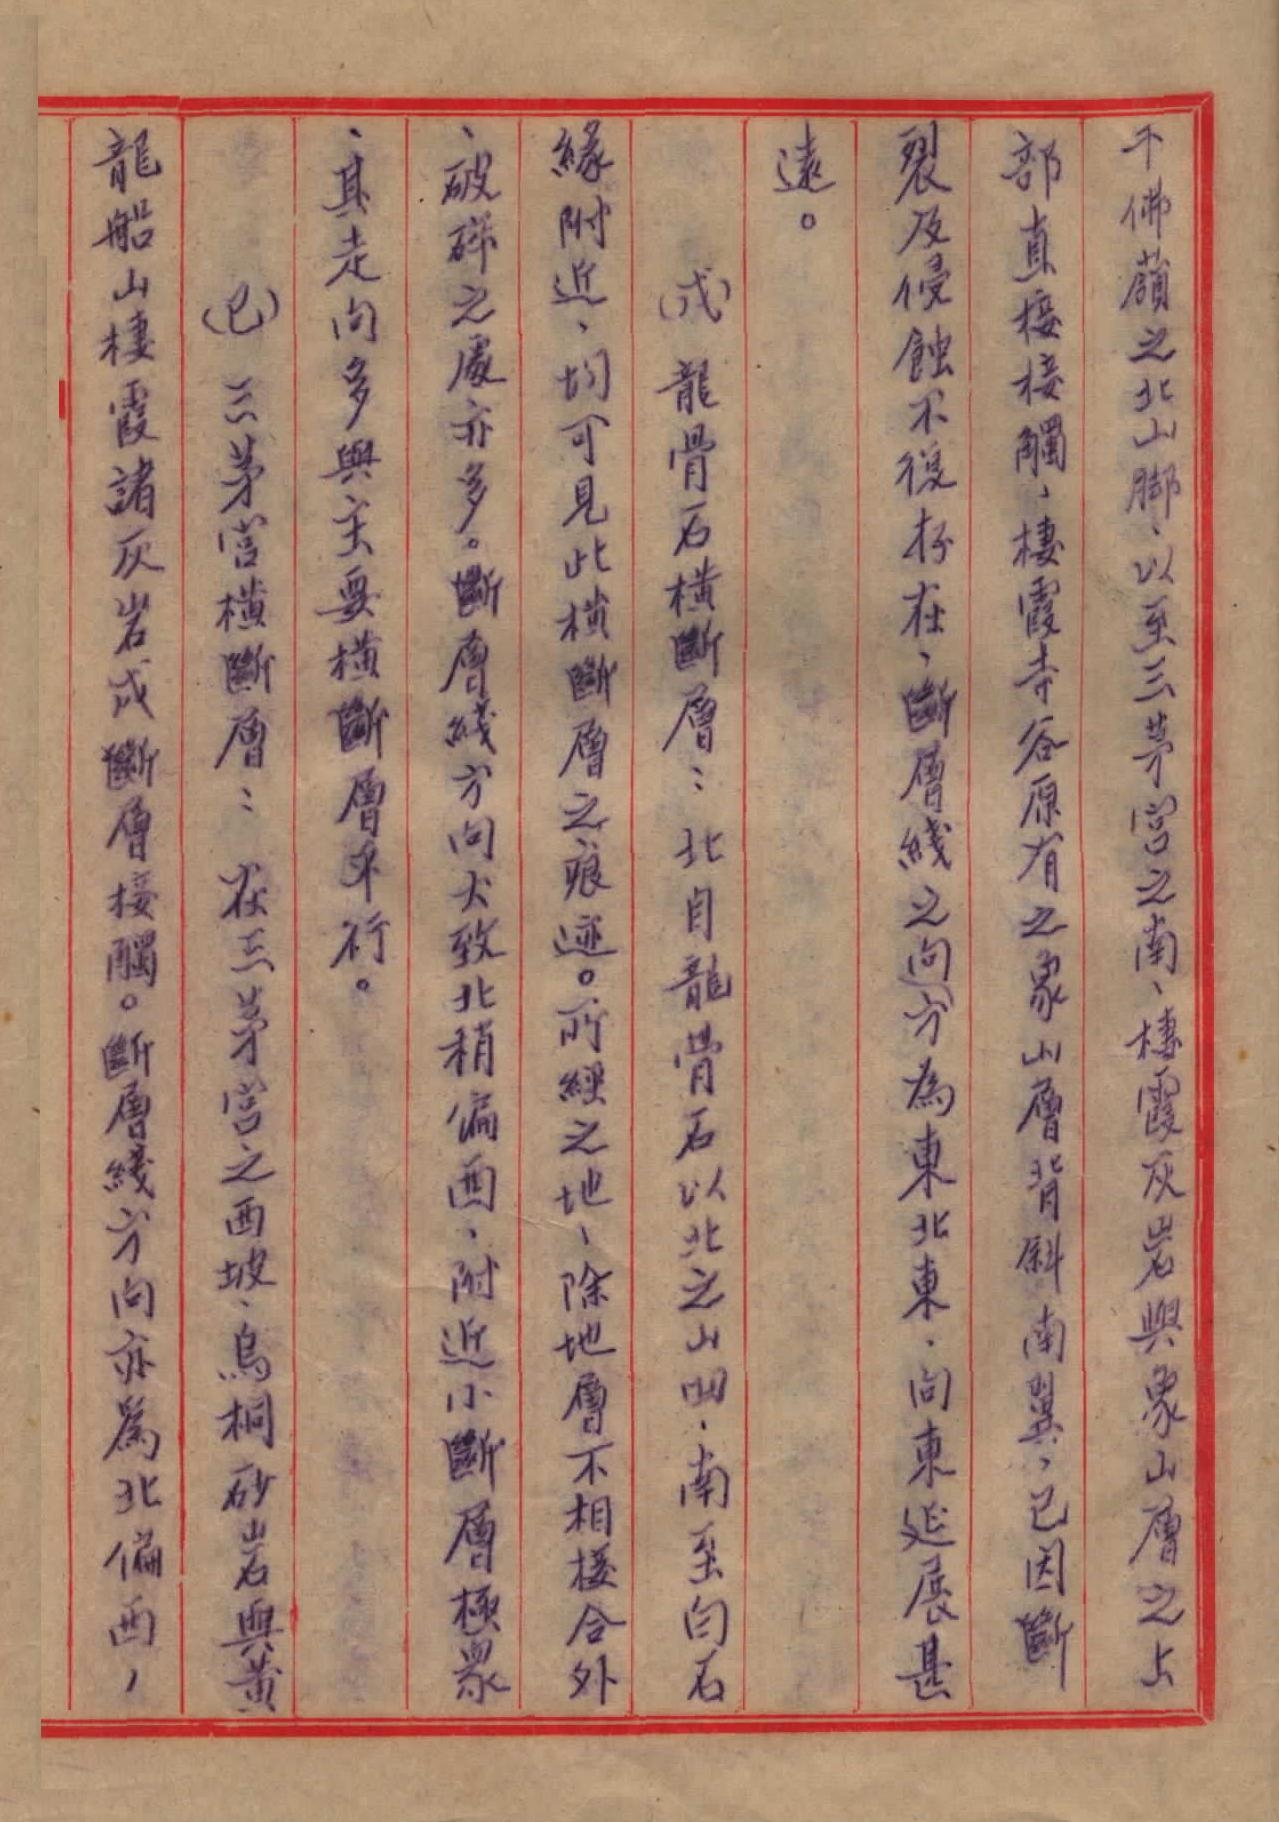 千佛嶺之北山脚、以至三茅宫之南、棲霞灰岩與象山層之上
部直接接觸、棲霞寺谷原有之象山層背斜南翼、已因斷
裂及侵蝕不復存在、斷層綫之向方為東北東、向東延展甚
遠。
(戊) 龍骨石橫斷層：北自龍骨石以北之山凹、南至白石
緣附近、均可見此橫斷層之痕迹。所經之地、除地層不相接合外
、破碎之處亦多。斷層綫方向大致北稍偏西、附近小斷層極眾
、其走向多與主要橫斷層平行。
(已) 三茅宫橫斷層：在三茅宫之西坡、烏桐砂岩與黃
龍船山棲霞諸灰岩成斷層接觸。斷層綫方向亦為北偏西，